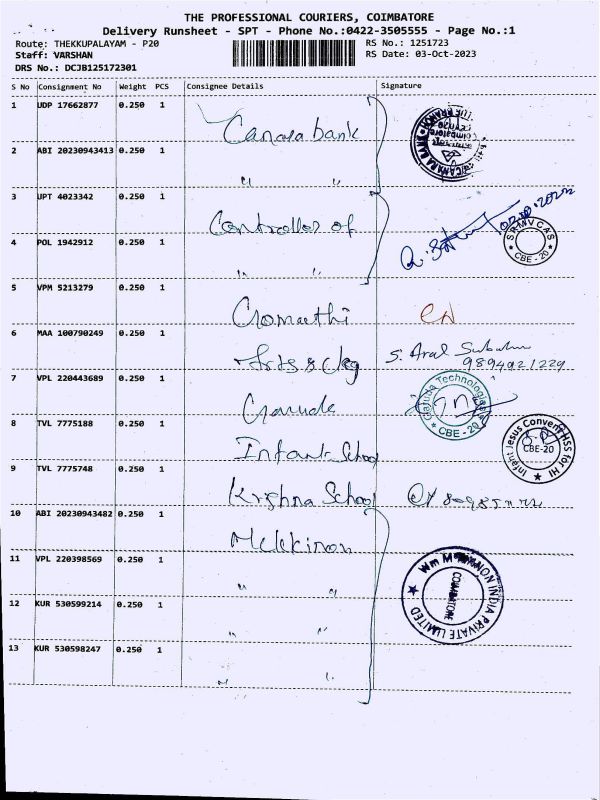 THE PROFESSIONAL COURIERS, COIMBATORE
Delivery Runsheet - SPT - Phone No.:0422-3505555 - Page No.:1
Route: THEKKUPALAYAM - P20
RS No.: 1251723
Staff: VARSHAN
RS Date: 03-Oct-2023
DRS No.: DCJB125172301
S No Consignment No Weight PCS Consignee Details Signature
1 UDP 17662877 0.250 1 Canara bank
2 ABI 20230943413 0.250 1 " "
3 UPT 4023342 0.250 1 Controller of
4 POL 1942912 0.250 1 " "
SRMVCAS CBE-20
5 VPM 5213279 0.250 1
6 MAA 100790249 0.250 1 Arts & Clg S. Aral
9894921229
7 VPL 220443689 0.250 1
Garuda Technologies CBE-20
8 TVL 7775188 0.250 1 Infant School
Infant Jesus Convent HSS for HI CBE-20
9 TVL 7775748 0.250 1 Krishna School
10 ABI 20230943482 0.250 1
11 VPL 220398569 0.250 1 " "
COIMBATORE INDIA PRIVATE LIMITED
12 KUR 530599214 0.250 1 " "
13 KUR 530598247 0.250 1 " "